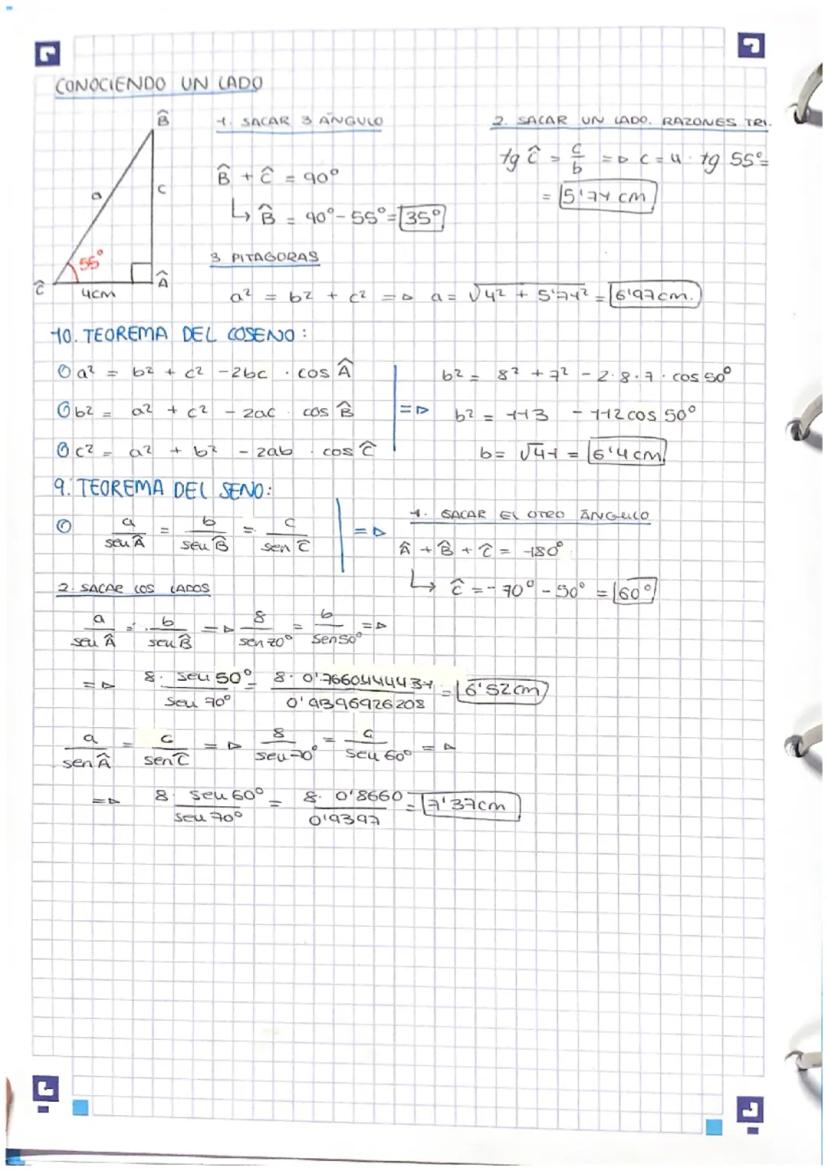 CONOCIENDO UN LADO
1. SACAR 3 ÁNGULO
B̂ + Ĉ = 90º
↳ B̂ = 90º - 55º = 35º
2. SACAR UN LADO. RAZONES TRI.
tg Ĉ = c/b => c = 4 · tg 55º =
= 5'74 cm
B̂
a
c
55º
Ĉ
4cm
Â
3 PITAGORAS
a² = b² + c² => a = √4² + 5'74² = 6'97cm.
10. TEOREMA DEL COSENO:
a² = b² + c² - 2bc · cos Â
b² = a² + c² - 2ac · cos B̂
c² = a² + b² - 2ab · cos Ĉ
=>
b² = 8² + 7² - 2·8·7·cos 50º
b² = 113 - 112 cos 50º
b = √41 = 6'4 cm
9. TEOREMA DEL SENO:
a/sen Â = b/sen B̂ = c/sen Ĉ =>
1. SACAR EL OTRO ÁNGULO
Â + B̂ + Ĉ = 180º
↳ Ĉ = - 70º - 50º = 60º
2. SACAR LOS LADOS
a/sen Â = b/sen B̂ => 8/sen 70º = b/sen 50º =>
=> 8 · sen 50º/sen 70º = 8 · 0'7660444431/0'9396926208 = 6'52cm
a/sen Â = c/sen Ĉ => 8/sen 70º = c/sen 60º =>
=> 8 · sen 60º/sen 70º = 8 · 0'8660/0'9397 = 7'37cm